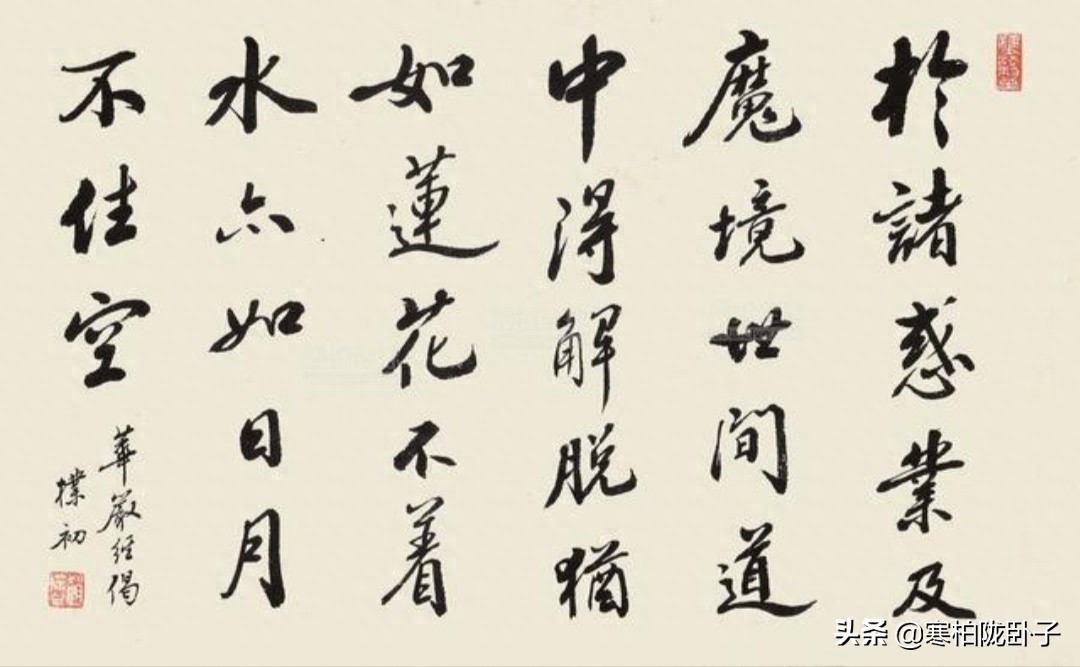 於諸惑業及
魔境世间道
中得解脱猶
如蓮花不着
水亦如日月
不住空
華嚴经偈
樸初
头条 @寒柏陇卧子